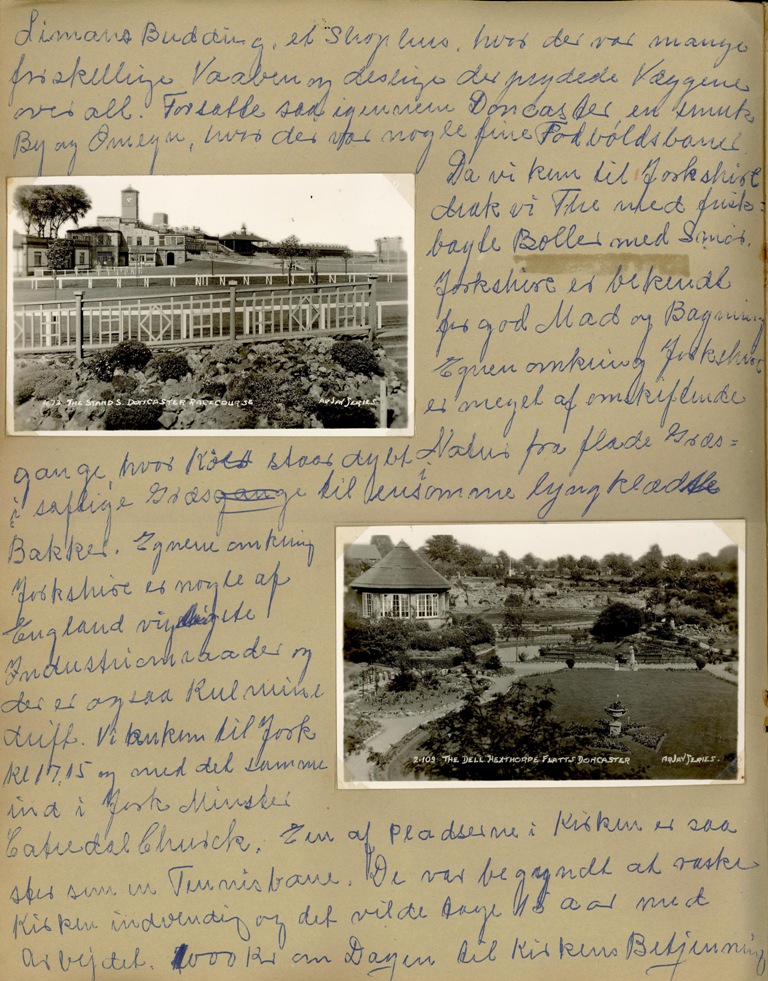 Simans Budding, et Shophus, hvor der var mange
forskellige Vaaben og deslige der prydede Væggene
over all. Forsatte saa igennem Doncaster en smuk
By og Omegn, hvor der var nogle fine Fodboldsbaner.
Da vi kom til Yorkshire
drak vi The med frisk=
bagte Boller med Smør.
Yorkshire er bekendt
for god Mad og Bagning
Egnen omkring Yorkshire
er meget af omskiftende
1673 THE STANDS. DONCASTER RACECOURSE ARJAY SERIES.
gange, hvor staar dybt Natur fra flade Græs=
i saftige Græsgange til ensomme lyngklædte
Bakker. Egnene omkring
Yorkshire er nogle af
England vigtigste
Industriomraader og
der er ogsaa Kulmine
drift. Vi ankom til York
Kl 17,15 og med det samme
ind i York Minster
2-109 THE DELL HEXTHORPE FLATTS DONCASTER ARJAY SERIES.
Catredal Church. En af Pladserne i Kirken er saa
stor som en Tennisbane. De var begyndt at vaske
Kirken indvendig og det vilde tage 15 aar med
Arbejdet. 1000 Kr om Dagen til Kirkens Betjenning